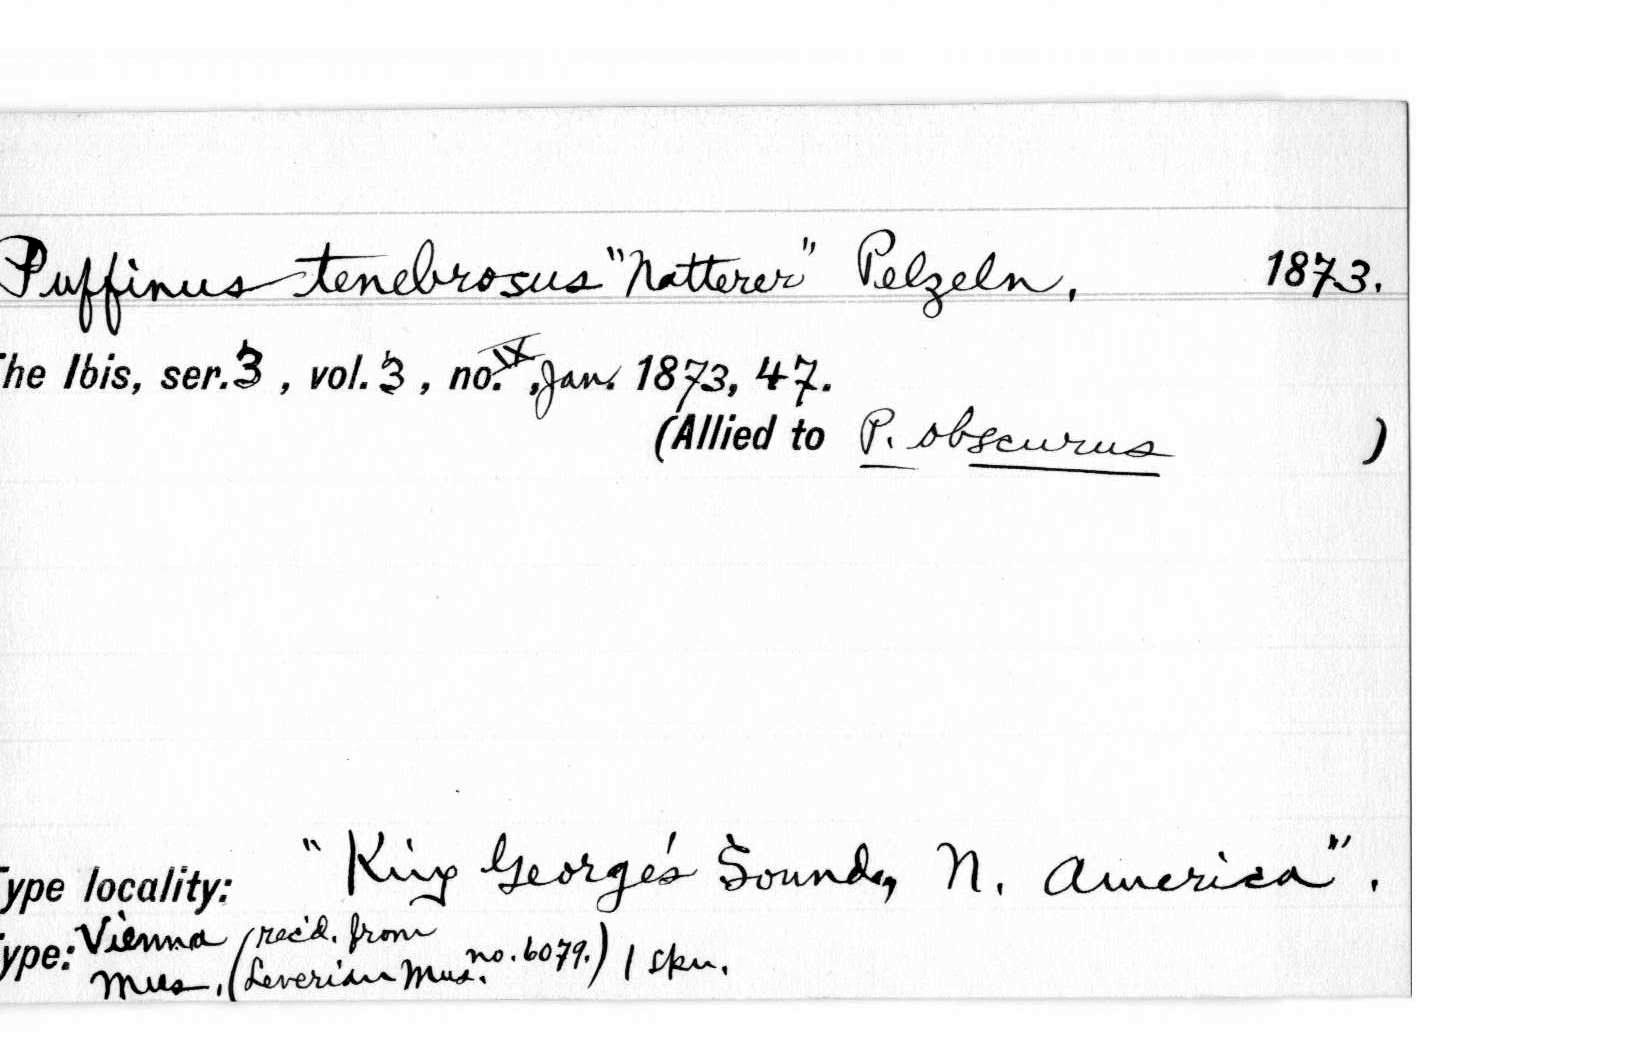 Puffinus tenebrosus "Natterer" Pelzeln, 1873.
The Ibis, ser. 3, vol. 3, no. IX, Jan. 1873, 47.
(Allied to P. obscurus )
Type locality: "King George's Sound, N. America".
Type: Vienna (rec'd. from
Mus., (Leverian Mus. no. 6079.) 1 spn.